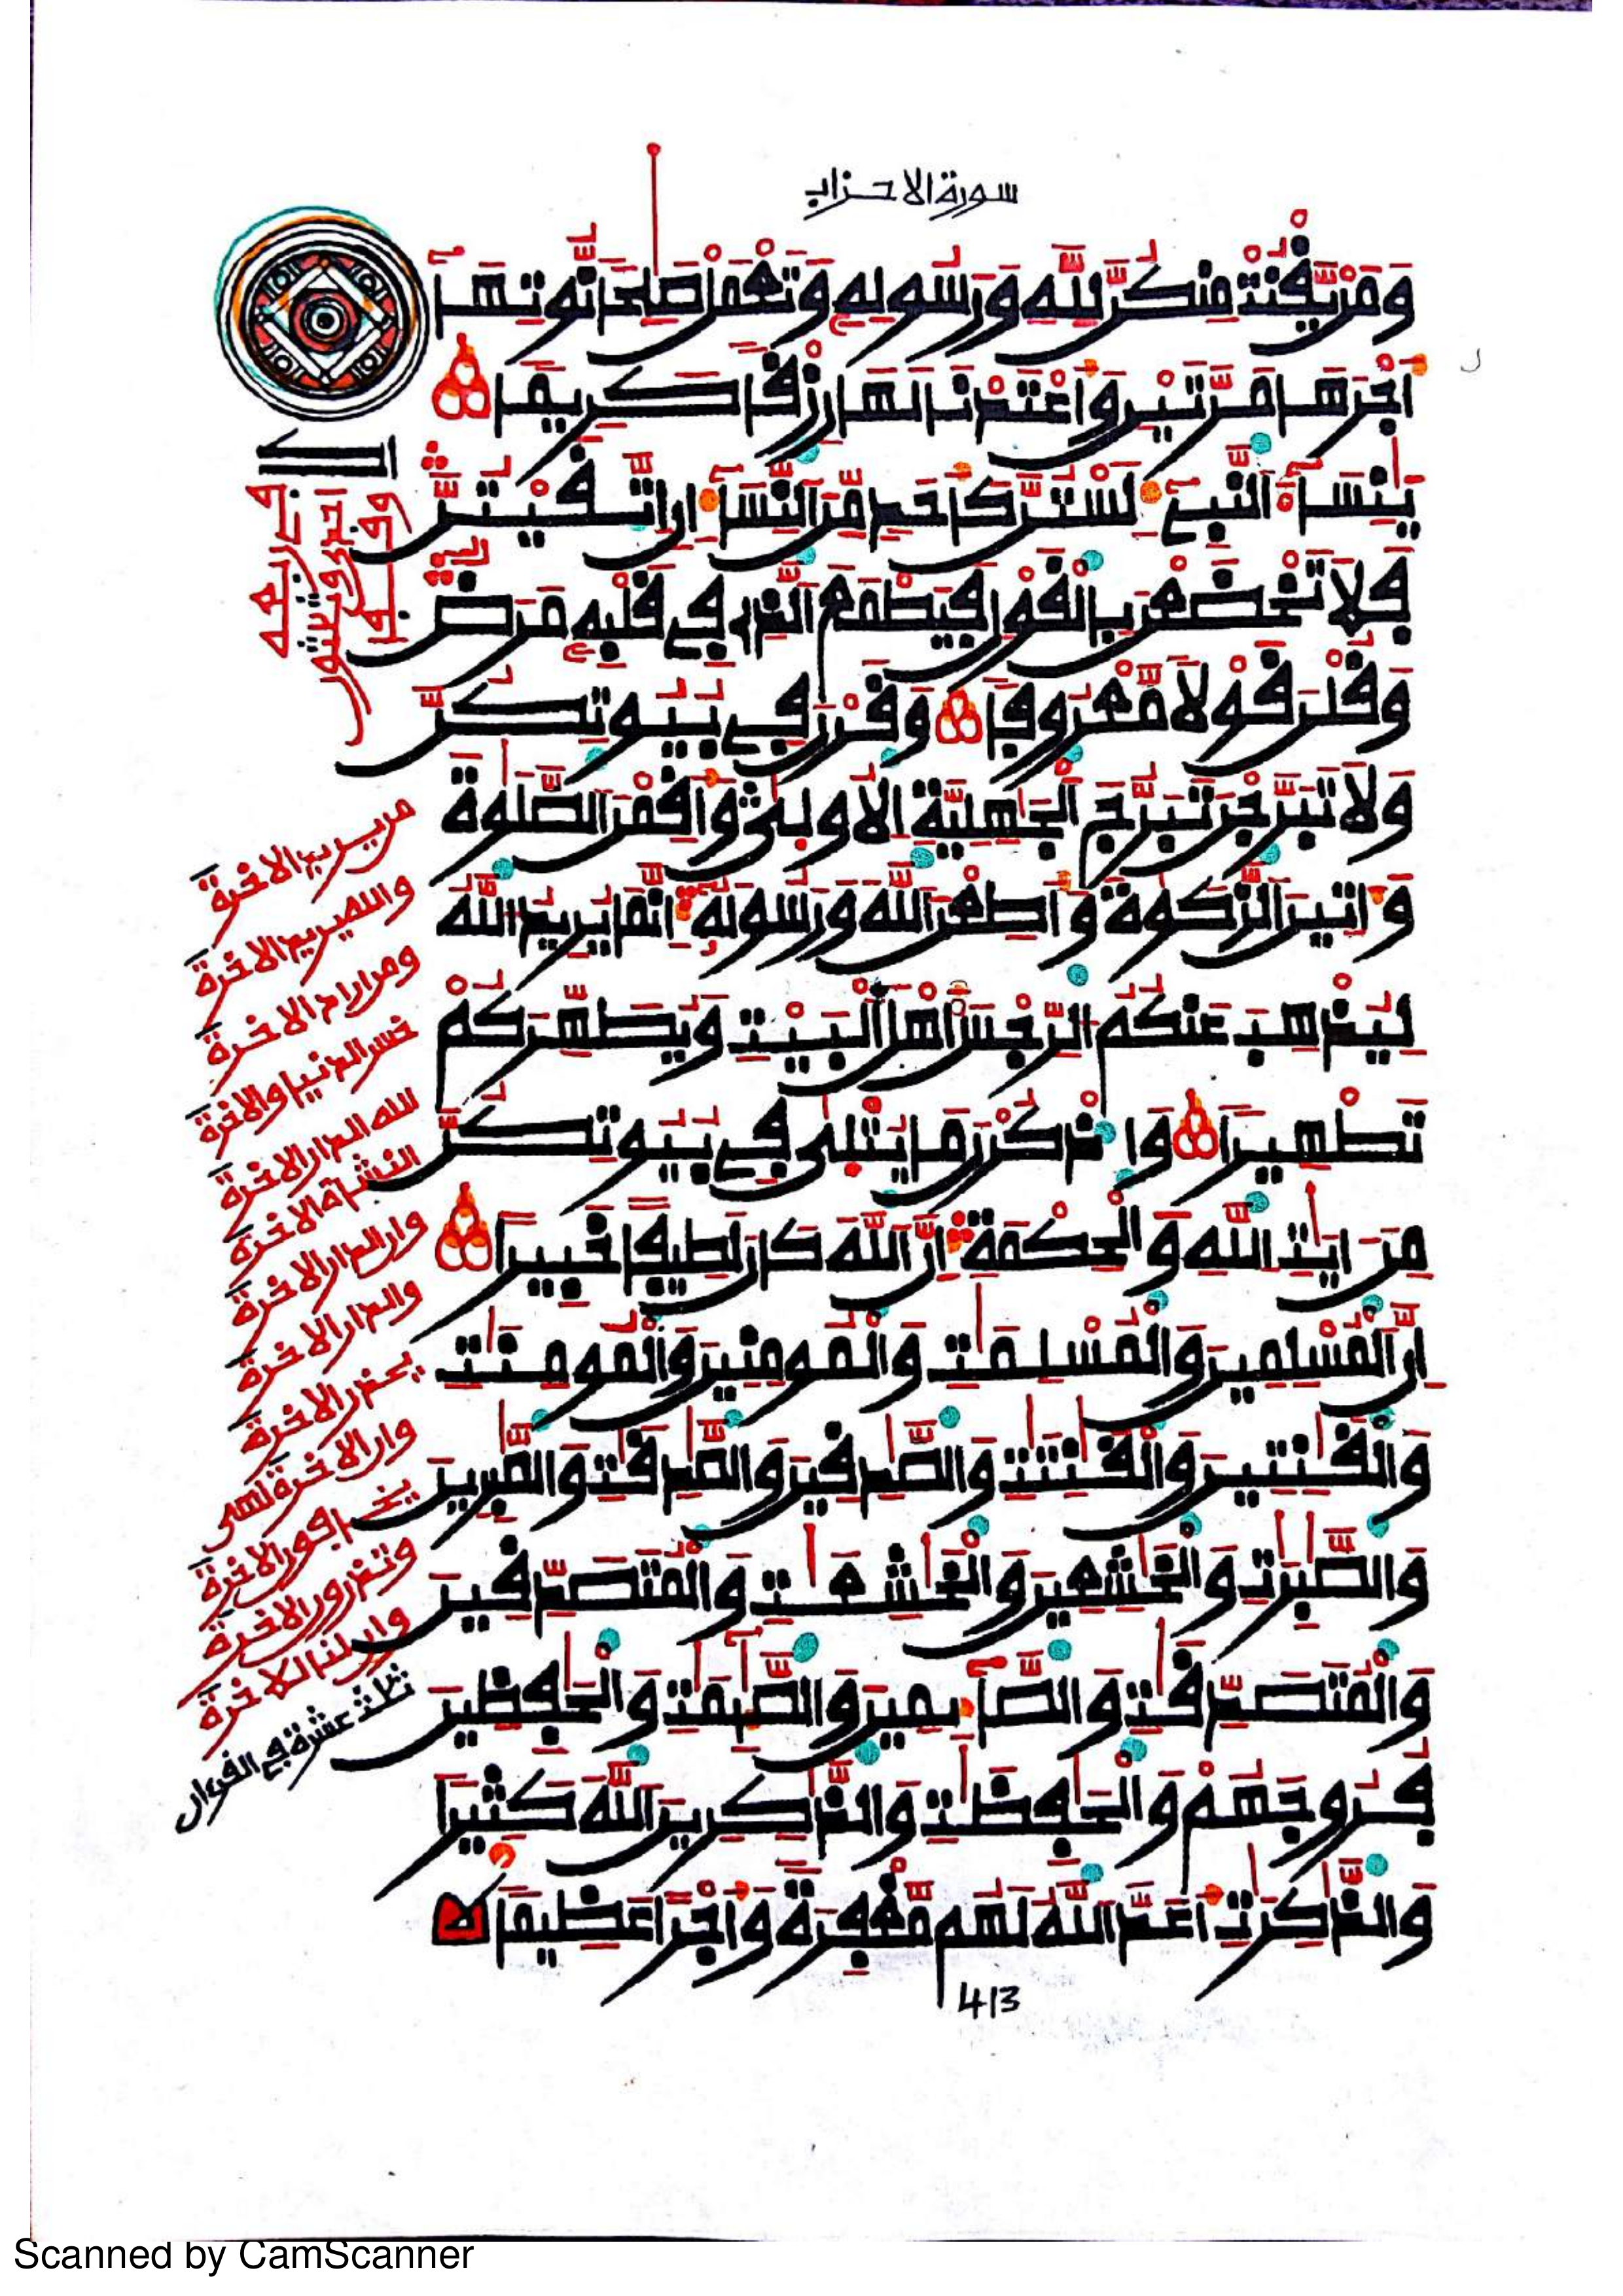 سورة الاحزاب
وَمَنْ يَّقْنُتْ مِنكُنَّ لِلهِ وَرَسُولِهِ وَتَعْمَلْ صَٰلِحاً نُّوتِهَآ
أَجْرَهَا مَرَّتَيْنِ وَأَعْتَدْنَا لَهَا رِزْقاً كَرِيماً
يَٰنِسَآءَ النَّبِيءِ لَسْتُنَّ كَأَحَدٍ مِّنَ النِّسَآءِ انِ اتَّقَيْتُنَّ
فَلاَ تَخْضَعْنَ بِالْقَوْلِ فَيَطْمَعَ الَّذِى فِى قَلْبِهِ مَرَضٌ
وَقُلْنَ قَوْلاً مَّعْرُوفاً وَقَرْنَ فِى بُيُوتِكُنَّ
وَلاَ تَبَرَّجْنَ تَبَرُّجَ الْجَٰهِلِيَّةِ الاُولَىٰ وَأَقِمْنَ الصَّلَوٰةَ
وَءَاتِينَ الزَّكَوٰةَ وَأَطِعْنَ اللَّهَ وَرَسُولَهُ إِنَّمَا يُرِيدُ اللَّهُ
لِيُذْهِبَ عَنكُمُ الرِّجْسَ أَهْلَ الْبَيْتِ وَيُطَهِّرَكُمْ
تَطْهِيراً وَاذْكُرْنَ مَا يُتْلَىٰ فِى بُيُوتِكُنَّ
مِنَ ايَٰتِ اللَّهِ وَالْحِكْمَةِ إِنَّ اللَّهَ كَانَ لَطِيفاً خَبِيراً
إِنَّ الْمُسْلِمِينَ وَالْمُسْلِمَٰتِ وَالْمُومِنِينَ وَالْمُومِنَٰتِ
وَالْقَٰنِتِينَ وَالْقَٰنِتَٰتِ وَالصَّٰدِقِينَ وَالصَّٰدِقَٰتِ وَالصَّٰبِرِينَ
وَالصَّٰبِرَٰتِ وَالْخَٰشِعِينَ وَالْخَٰشِعَٰتِ وَالْمُتَصَدِّقِينَ
وَالْمُتَصَدِّقَٰتِ وَالصَّٰٓئِمِينَ وَالصَّٰٓئِمَٰتِ وَالْحَٰفِظِينَ
فُرُوجَهُمْ وَالْحَٰفِظَٰتِ وَالذَّٰكِرِينَ اللَّهَ كَثِيراً
وَالذَّٰكِرَٰتِ أَعَدَّ اللَّهُ لَهُم مَّغْفِرَةً وَأَجْراً عَظِيماً
413
من يريد الاخرة
والله يريد الاخرة
ومن اراد الاخرة
خسر الدنيا والاخرة
لله الدار الاخرة
النشأة الاخرة
وان الدار الاخرة
والدار الاخرة
يحذر الاخرة
وان الاخرة لهى
يخافون الاخرة
وتذرون الاخرة
وان لنا للاخرة
ثلاث عشرة في القرءان
Scanned by CamScanner